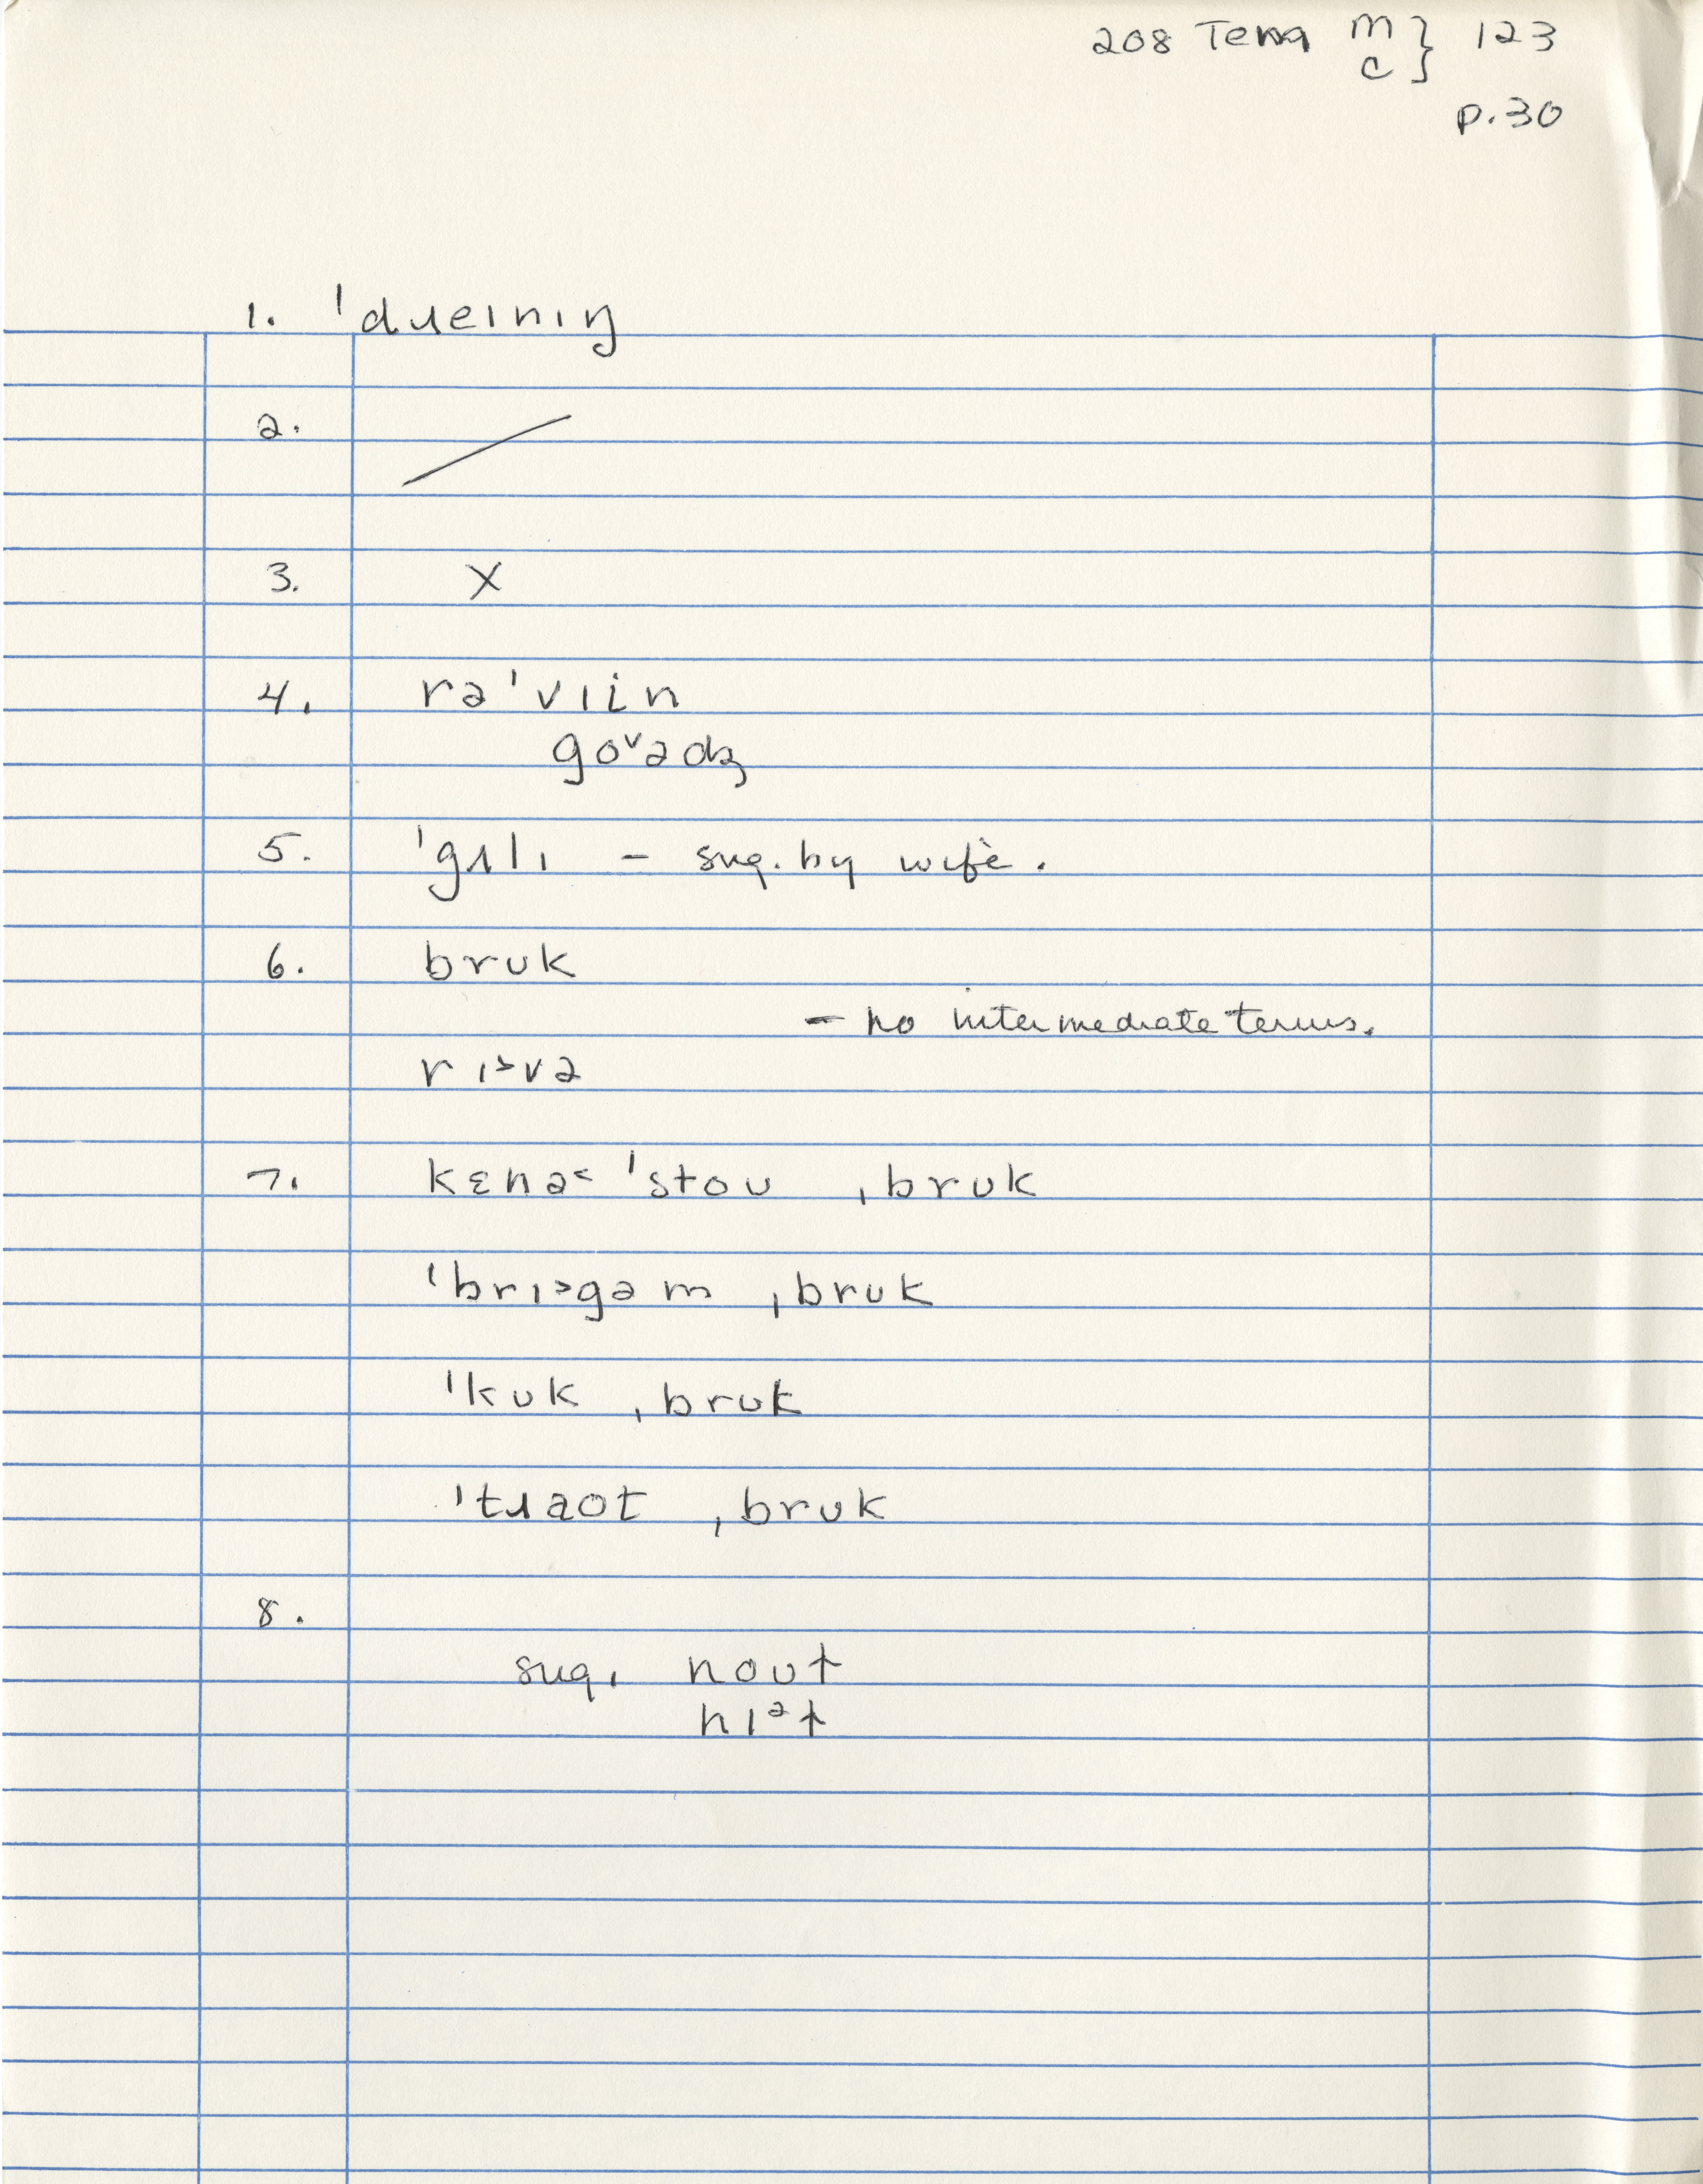 208 Tenn m } 123
c
p.30
1. ˈdɹeɪnɪŋ
2. /
3. X
4. rəˈvɪin
goᵛədʒ
5. ˈgʌlɪ – sug. by wife.
6. brʊk
– no intermediate terms.
rɪ˃və
7. kɛnə˂ ˈstoʊ ˌbrʊk
ˈbrɪ˃gəm ˌbrʊk
ˈkʊk ˌbrʊk
ˈtɹaʊt ˌbrʊk
8.
sug. noʊt
nɪᵊt